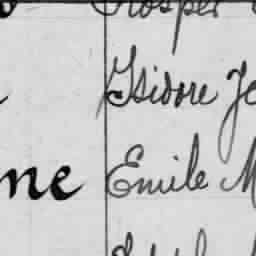 Prosper
Isidore Je
ne Emile M